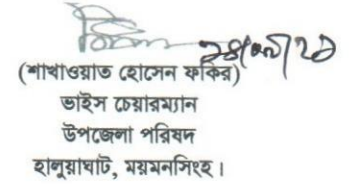 (শাখাওয়াত হোসেন ফকির)
ভাইস চেয়ারম্যান
উপজেলা পরিষদ
হালুয়াঘাট, ময়মনসিংহ।